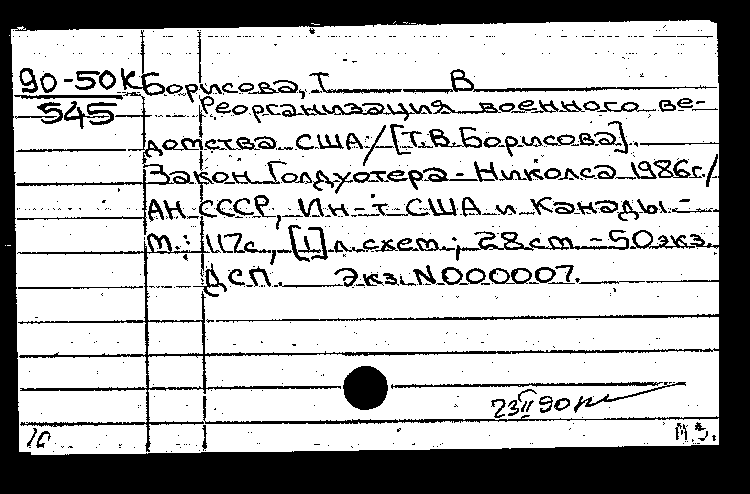 90-50К Борисова, Т В
545 Реорганизация военного ве-
домства США / [Т.В. Борисова].
Закон Голдуотера-Николса 1986г. /
АН СССР, Ин-т США и Канады.-
М.: 117с., [1] л. схем.; 28 см - 50 экз.
ДСП. Экз. N000007.
23 II 90
М.З.